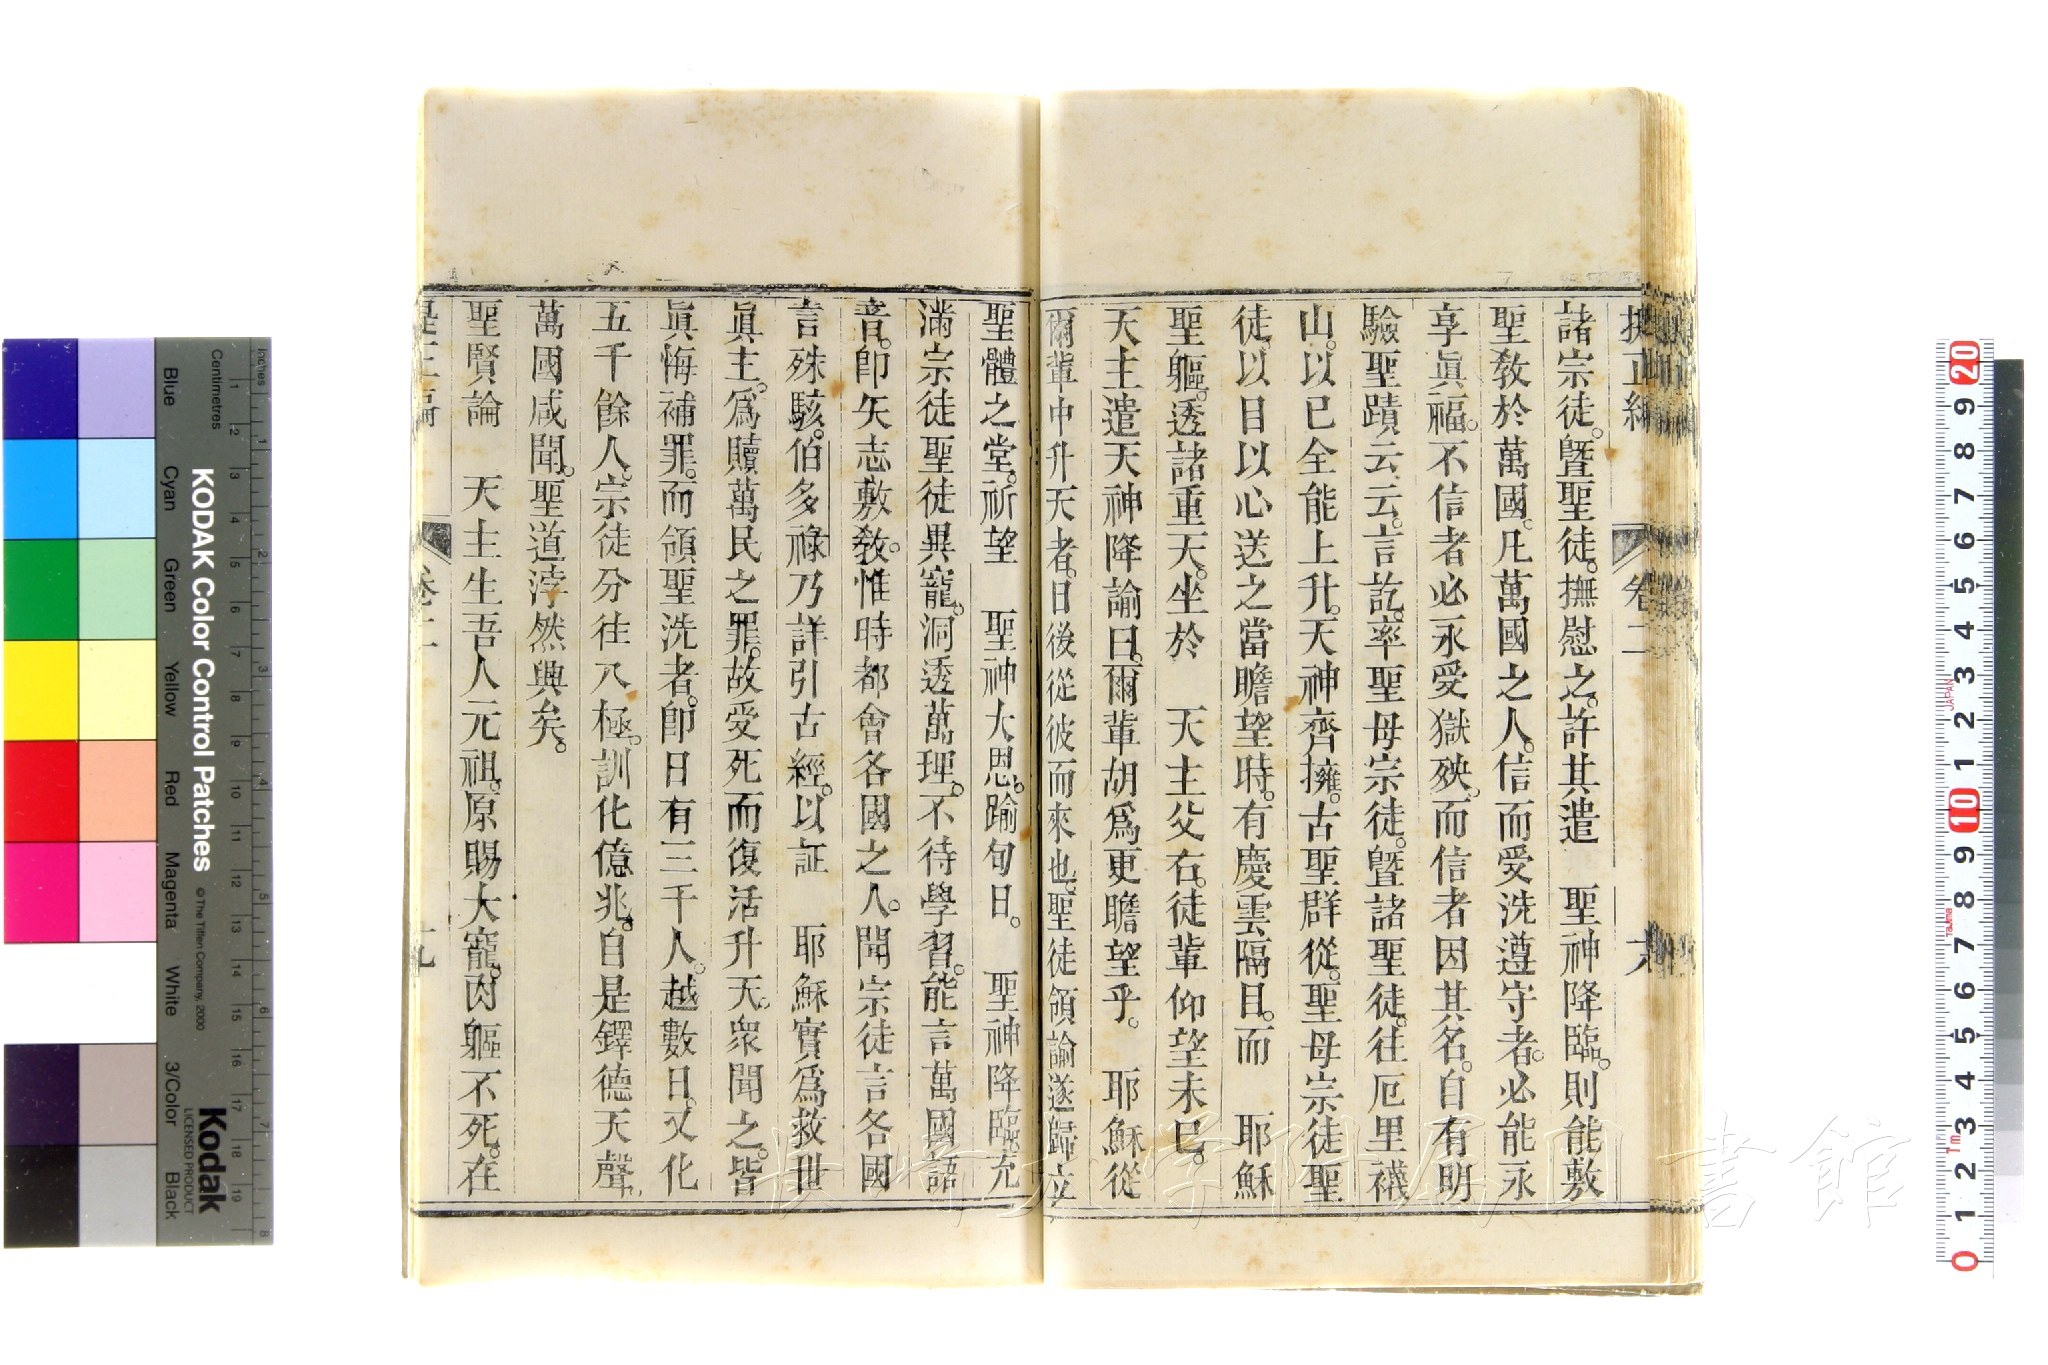 正編 卷二
諸宗徒。暨聖徒。撫慰之。許其遣 聖神降臨。則能敷
聖敎於萬國。凡萬國之人。信而受洗遵守者。必能永
享眞福。不信者必永受獄殃。而信者因其名。自有明
驗聖蹟云云。言訖。率聖母宗徒。暨諸聖徒。往厄里襪
山。以已全能上升。天神齊擁。古聖群從。聖母宗徒聖
徒。以目以心送之當瞻望時。有慶雲隔目。而 耶穌
聖軀。透諸重天。坐於 天主父右。徒輩仰望未已。
天主遣天神降諭曰。爾輩胡爲更瞻望乎。 耶穌從
爾輩中升天者。日後從彼而來也。聖徒領諭遂歸立
聖體之堂。祈望 聖神大恩。踰旬日。 聖神降臨。充
滿宗徒聖徒異寵。洞透萬理。不待學習。能言萬國語
音。卽矢志敷敎。惟時都會各國之人。聞宗徒言各國
言殊駭。伯多祿乃詳引古經。以証 耶穌實爲救世
眞主。爲贖萬民之罪。故受死而復活升天。衆聞之。皆
眞悔補罪。而領聖洗者。卽日有三千人。越數日。又化
五千餘人。宗徒分往八極。訓化億兆。自是鐸德天聲
萬國咸聞。聖道浡然興矣。
聖賢論 天主生吾人元祖。原賜大寵。肉軀不死。在
正編 卷二 九
KODAK Color Control Patches
© The Tiffen Company, 2000
Kodak
LICENSED PRODUCT
Inches
Centimetres
Blue
Cyan
Green
Yellow
Red
Magenta
White
3/Color
Black
JAPAN
TaJima
長崎大学附属図書館